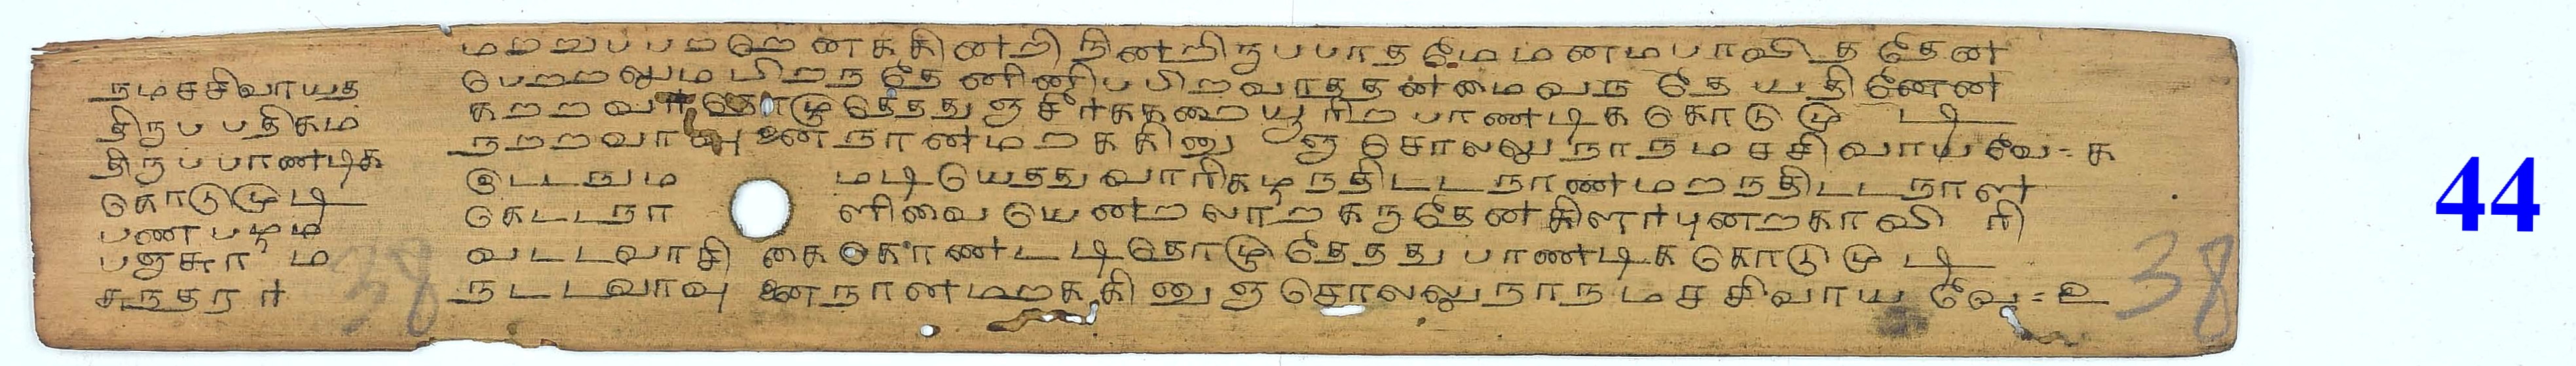 நமசசிவாயத
திருபபதிகம
திருபபாணடிக
கொடுமுடி
பண பழம
பஞசுரம
சுநதரர
மறறுபபறறெனககினறி நினறிருபபாதமேமனமபாவிததேன
பெறறலுமபிறநதேனினிபபிறவாததனமைவநதேயதினேன
கறறவரதொழுதேததுஞசீரககறையூரிறபாணடிககொடுமுடி
நறறவாவுனைநானமறககினுஞசொலலுநாநமசசிவாயவே = க
இடடநும மடியேததுவாரிகழநதிடடநாணமறநதிடடநாள
கெடடநா ளிவையெனறலாறகருதேனகிளரபுனறகாவிரி
வடடவாசிகைகொணடடிதொழுதேதது பாணடிககொடுமுடி
நடடவாவுனைநானமறககினுஞசொலலுநாநமசசிவாயவே = உ
38
38
44